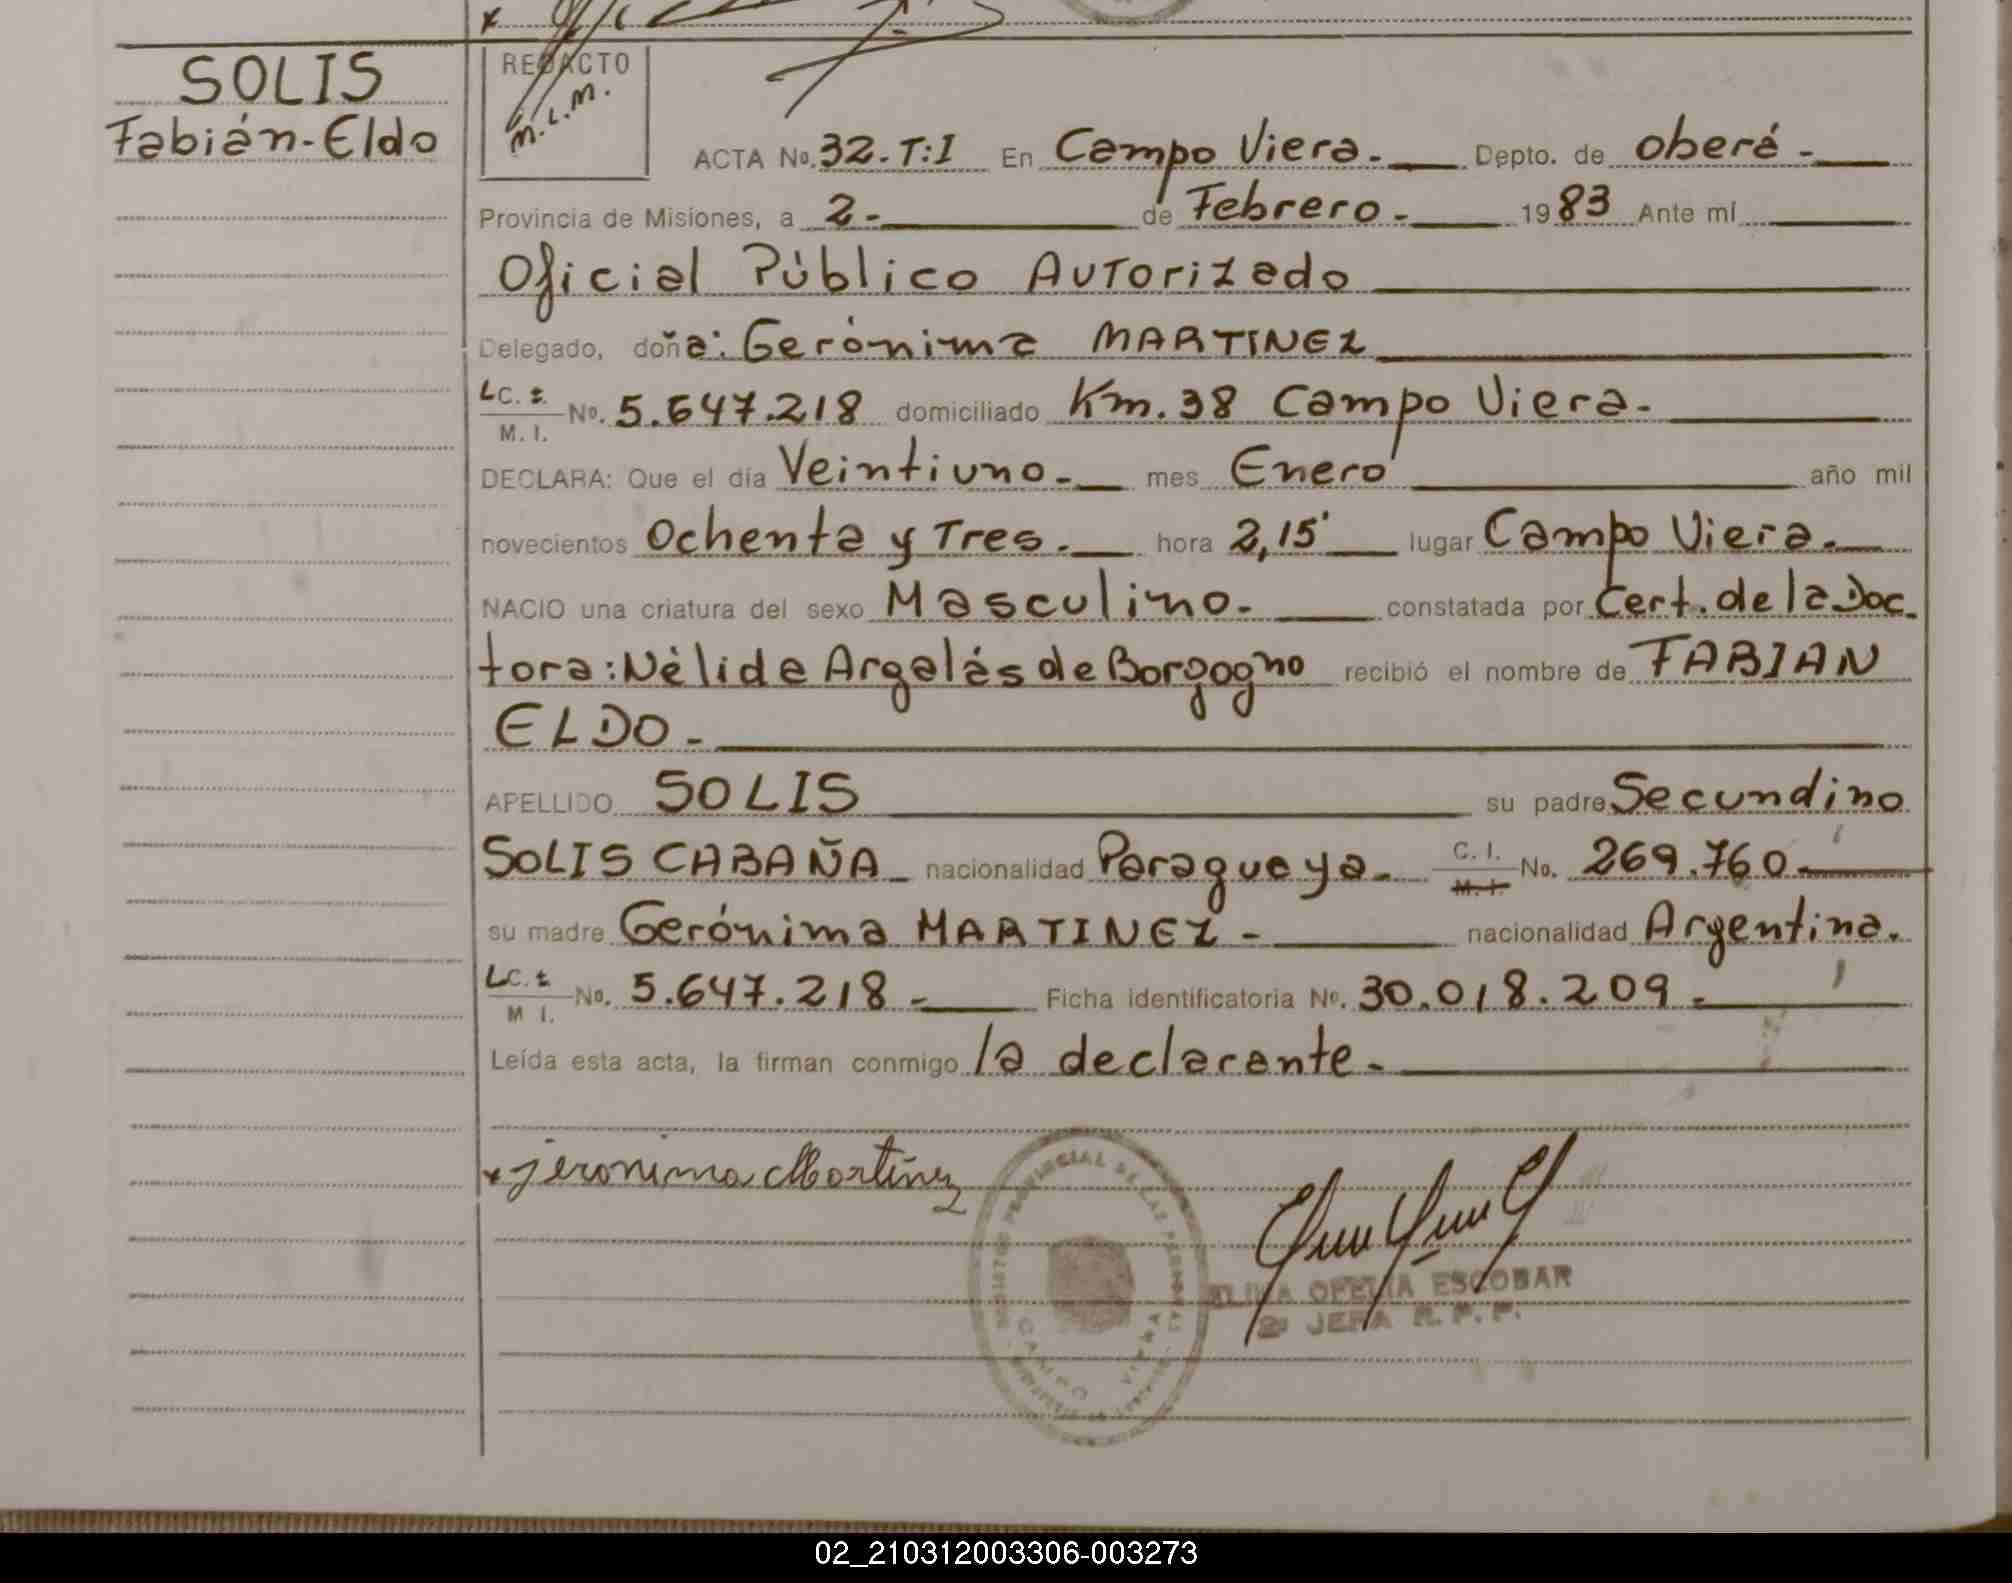 SOLIS
Fabián-Eldo
REDACTO
M.L.M.
ACTA No. 32.T:I En Campo Viera.- Depto. de Oberá -
Provincia de Misiones, a 2- de Febrero.- 1983 Ante mí
Oficial Público Autorizado
Delegado, doña: Gerónima MARTINEZ
LC. No. 5.647.218 domiciliado Km.38 Campo Viera.-
M. I.
DECLARA: Que el día Veintiuno.- mes Enero año mil
novecientos Ochenta y Tres.- hora 2,15' lugar Campo Viera.-
NACIO una criatura del sexo Masculino.- constatada por Cert. de la Doc
tora: Nélida Argalás de Borgogno recibió el nombre de FABIAN
ELDO.-
APELLIDO SOLIS su padre Secundino
SOLIS CABAÑA nacionalidad Paraguaya.- C. I. No. 269.760.-
M. I.
su madre Gerónima MARTINEZ - nacionalidad Argentina.
LC. No. 5.647.218.- Ficha identificatoria No. 30.018.209.-
M I.
Leída esta acta, la firman conmigo la declarante.-
x jeronima Martinez
REGISTRO PROVINCIAL DE LAS PERSONAS
CAMPO VIERA
OFELIA ESCOBAR
JEFA R. P. P.
02_210312003306-003273